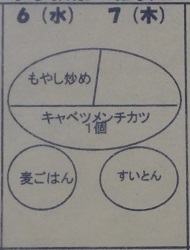 6（水） 7（木）
もやし炒め
キャベツメンチカツ
1個
麦ごはん
すいとん